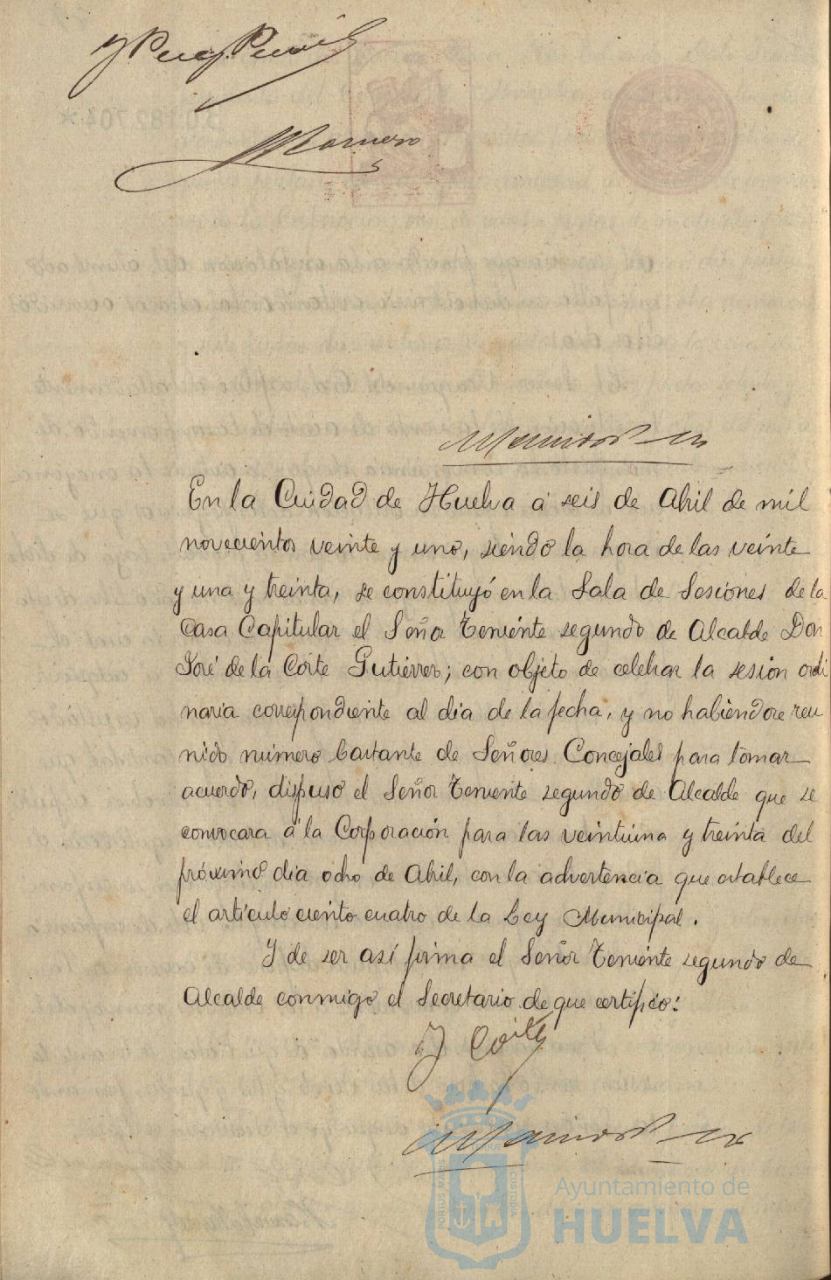 Romero
En la Ciudad de Huelva á seis de Abril de mil
novecientos veinte y uno, siendo la hora de las veinte
y una y treinta, se constituyó en la Sala de Sesiones de la
Casa Capitular el Señor Teniente segundo de Alcalde Don
José de la Corte Gutiérrez; con objeto de celebrar la sesión ordi
naria correspondiente al dia de la fecha, y no habiendose reu
nido número bastante de Señores Concejales para tomar
acuerdo, dispuso el Señor Teniente segundo de Alcalde que se
convocara á la Corporación para las veintiuna y treinta del
próximo dia ocho de Abril, con la advertencia que establece
el artículo ciento cuatro de la Ley Municipal.
Y de ser así firma el Señor Teniente segundo de
Alcalde conmigo el Secretario de que certifico:
J Corte
Ayuntamiento de
HUELVA